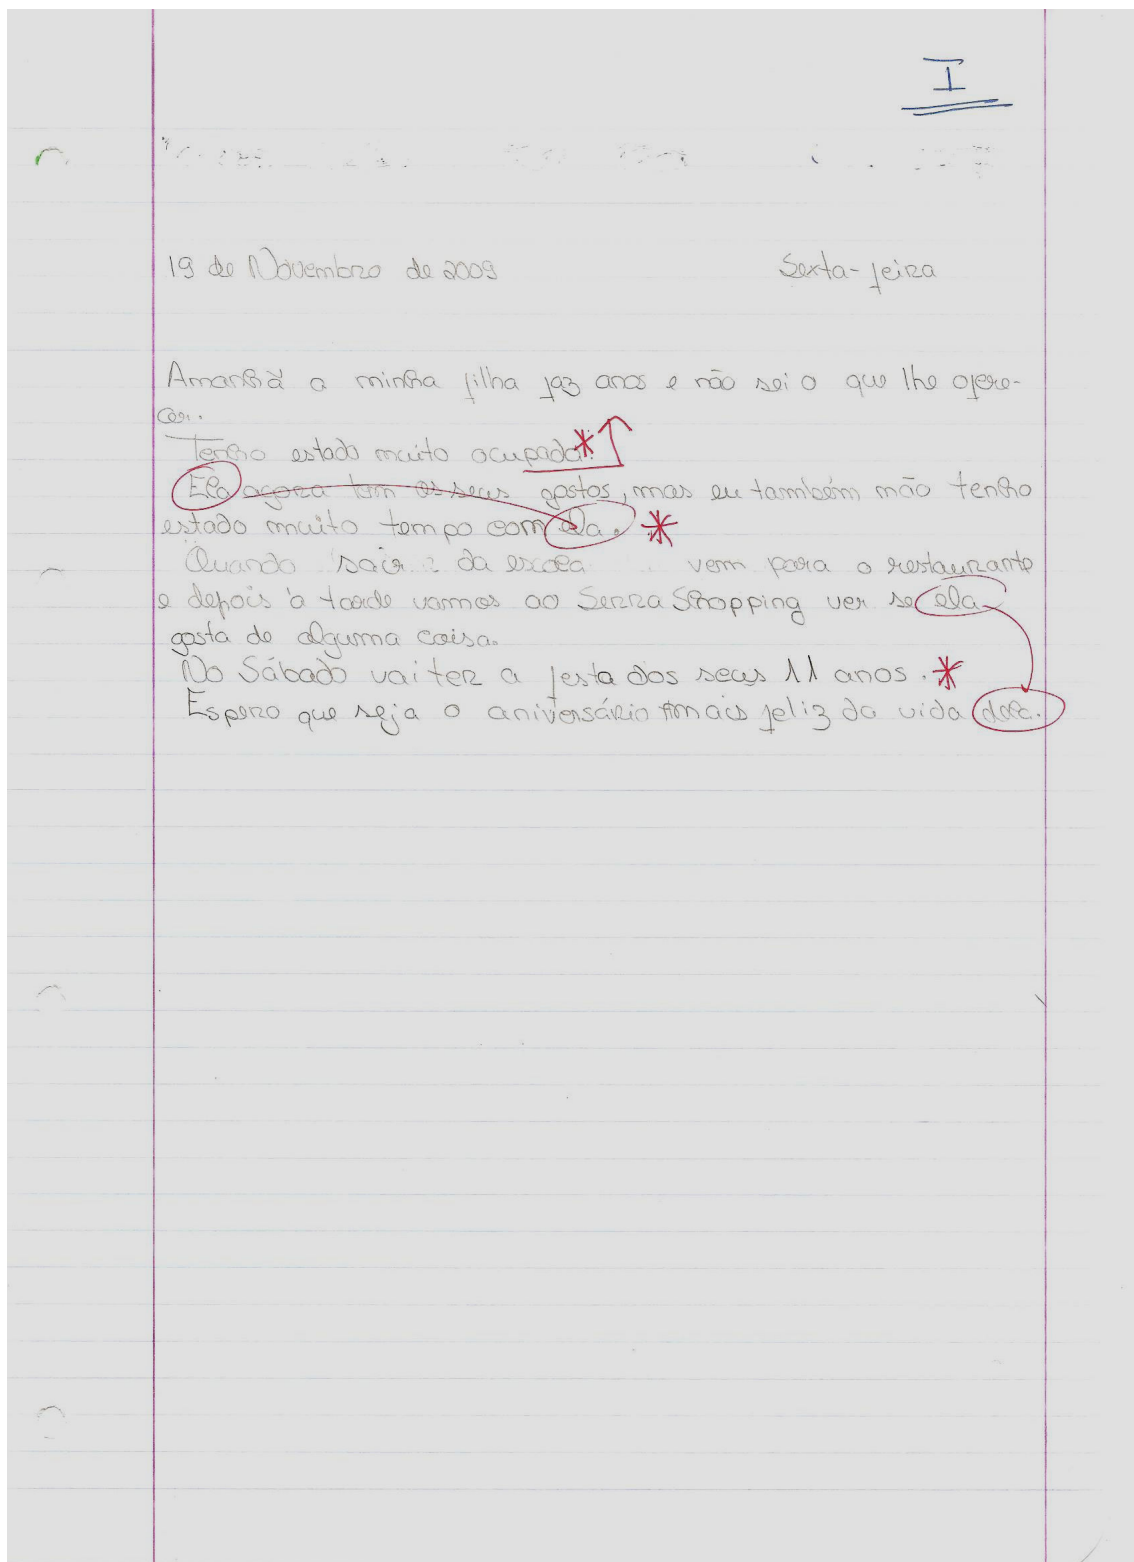 I
19 de Novembro de 2009 Sexta-feira
Amanhã a minha filha faz anos e não sei o que lhe ofere-
cer.
Tenho estado muito ocupada.
Ela agora tem os seus gostos, mas eu também não tenho
estado muito tempo com ela.
Quando sair da escola vem para o restaurante
e depois à tarde vamos ao Serra Shopping ver se ela
gosta de alguma coisa.
No Sábado vai ter a festa dos seus 11 anos.
Espero que seja o aniversário mais feliz da vida dela.